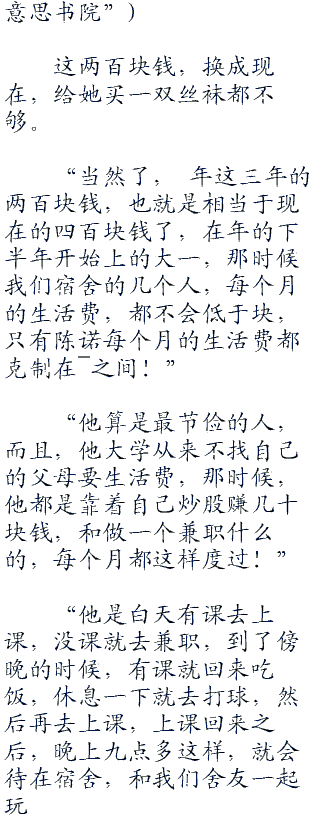 意思书院”）
这两百块钱，换成现
在，给她买一双丝袜都不
够。
“当然了， 年这三年的
两百块钱，也就是相当于现
在的四百块钱了，在年的下
半年开始上的大一，那时候
我们宿舍的几个人，每个月
的生活费，都不会低于块，
只有陈诺每个月的生活费都
克制在¯之间！”
“他算是最节俭的人，
而且，他大学从来不找自己
的父母要生活费，那时候，
他都是靠着自己炒股赚几十
块钱，和做一个兼职什么
的，每个月都这样度过！”
“他是白天有课去上
课，没课就去兼职，到了傍
晚的时候，有课就回来吃
饭，休息一下就去打球，然
后再去上课，上课回来之
后，晚上九点多这样，就会
待在宿舍，和我们舍友一起
玩